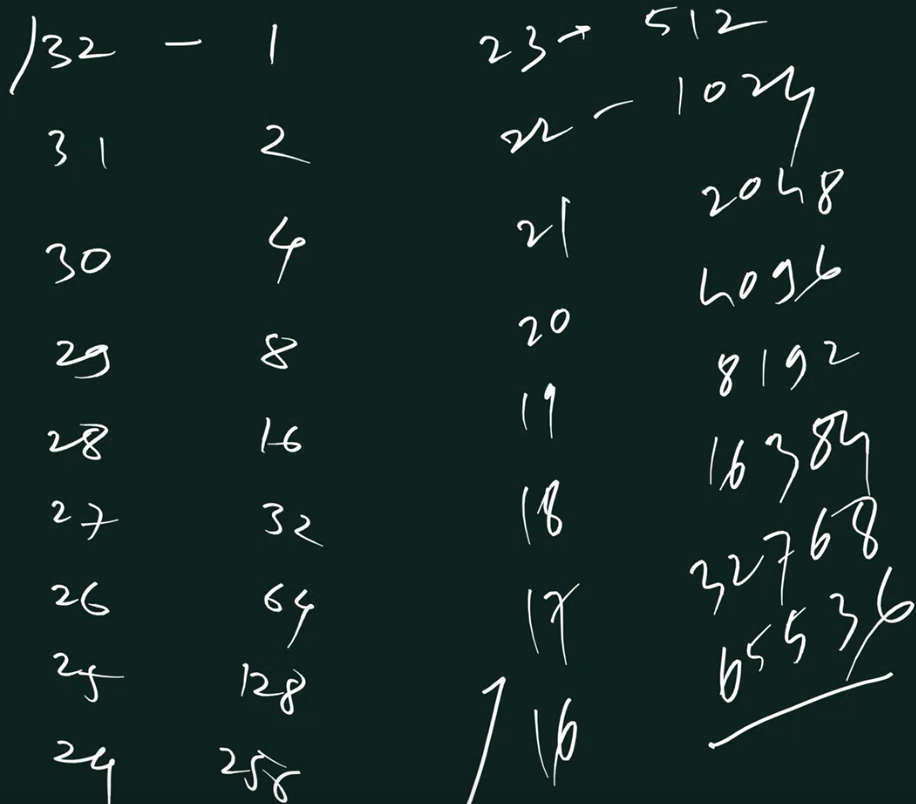 /32 - 1
31 2
30 4
29 8
28 16
27 32
26 64
25 128
24 256
23 → 512
22 - 1024
21 2048
20 4096
19 8192
18 16384
17 32768
/16 65536